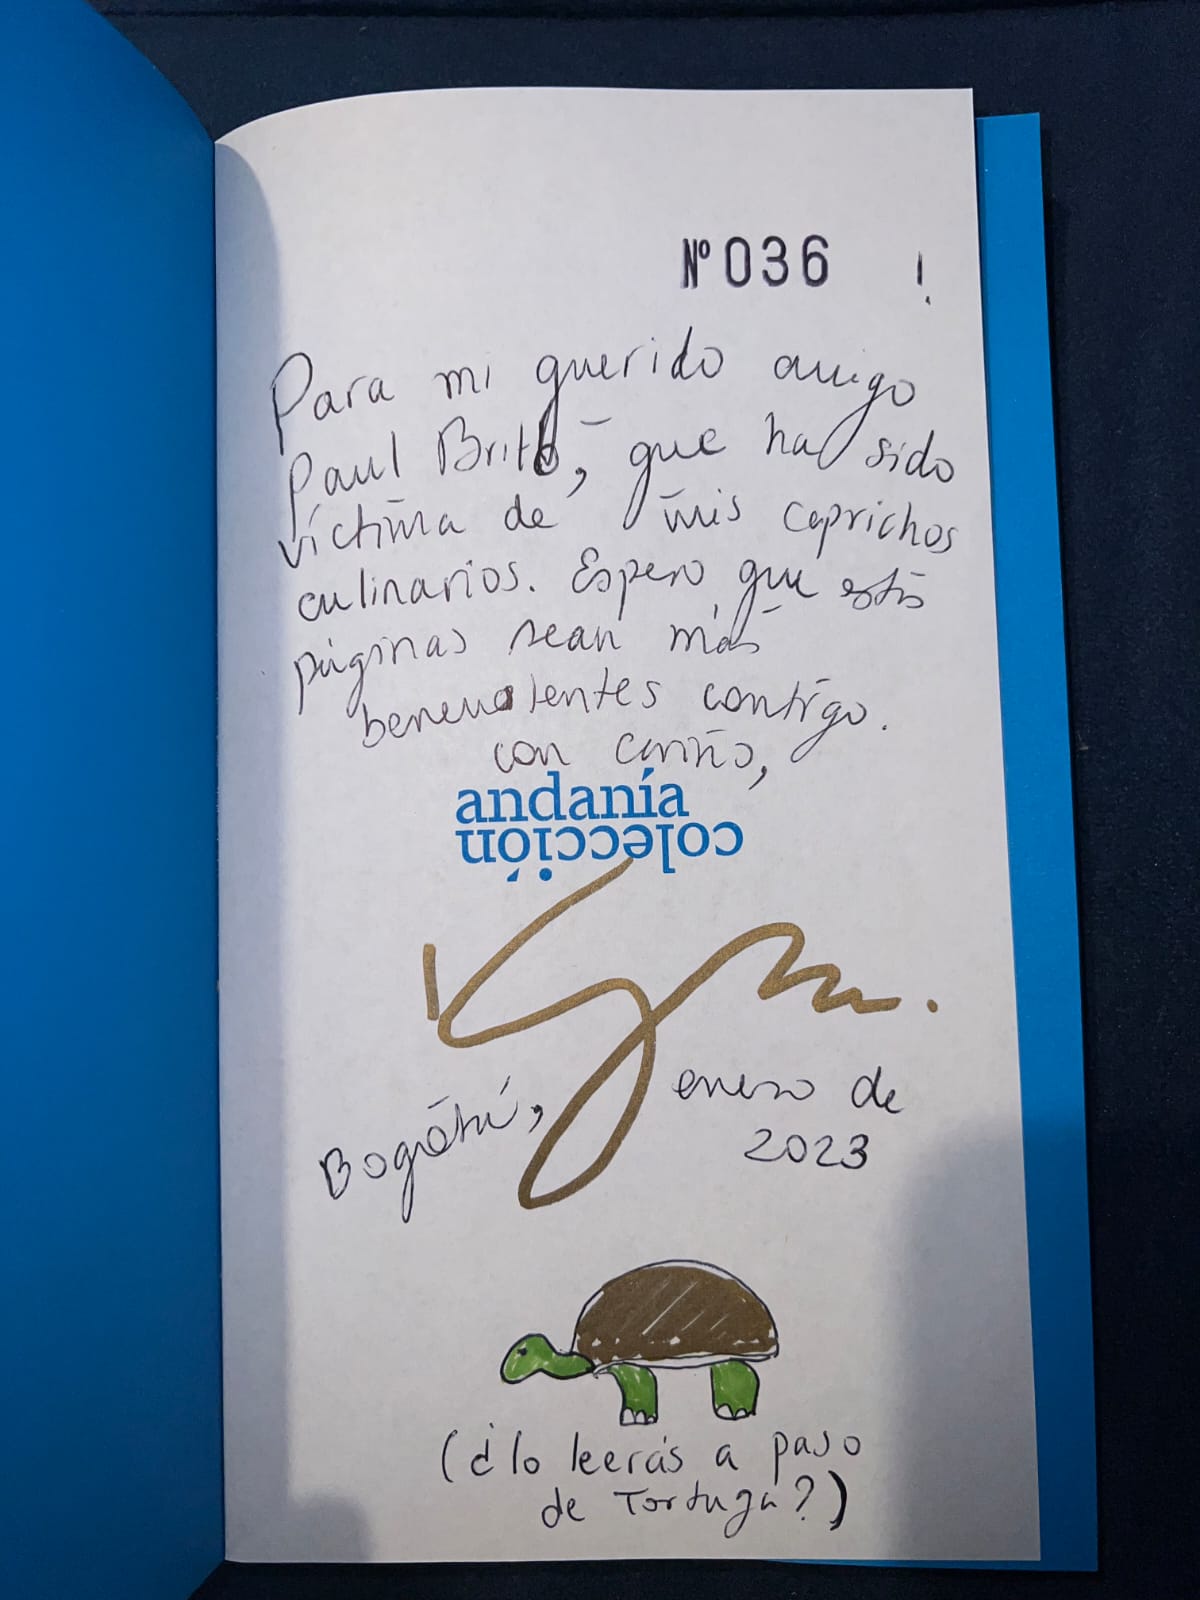 Nº 036 !
Para mi querido amigo
Paul Brito, que ha sido
víctima de mis caprichos
culinarios. Espero que estas
páginas sean más
benevolentes contigo.
con cariño,
andanía
colección
Bogotá, enero de
2023
(¿lo leerás a paso
de Tortuga?)